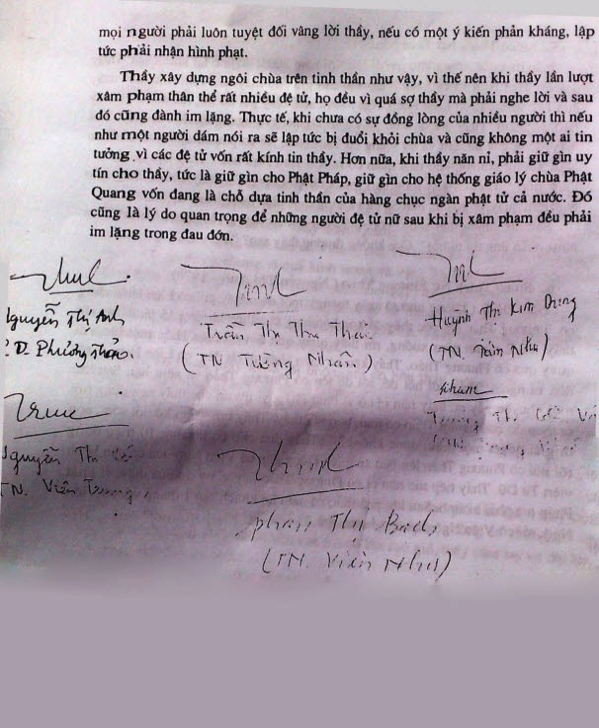 mọi người phải luôn tuyệt đối vâng lời thầy, nếu có một ý kiến phản kháng, lập
tức phải nhận hình phạt.
Thầy xây dựng ngôi chùa trên tinh thần như vậy, vì thế nên khi thầy lần lượt
xâm phạm thân thể rất nhiều đệ tử, họ đều vì quá sợ thầy mà phải nghe lời và sau
đó cũng đành im lặng. Thực tế, khi chưa có sự đồng lòng của nhiều người thì nếu
như một người dám nói ra sẽ lập tức bị đuổi khỏi chùa và cũng không một ai tin
tưởng vì các đệ tử vốn rất kính tin thầy. Hơn nữa, khi thầy năn nỉ, phải giữ gìn uy
tín cho thầy, tức là giữ gìn cho Phật Pháp, giữ gìn cho hệ thống giáo lý chùa Phật
Quang vốn đang là chỗ dựa tinh thần của hàng chục ngàn phật tử cả nước. Đó
cũng là lý do quan trọng để những người đệ tử nữ sau khi bị xâm phạm đều phải
im lặng trong đau đớn.
Nguyễn Thị Anh
D. Phương Thảo.
Trần Thị Thu
(TN Tường Nhân)
Huỳnh Thị Kim Dung
(TN. Tâm Như)
Nguyễn Thị
TN. Viên
Phan Thị Bạch
(TN. Viên Như)